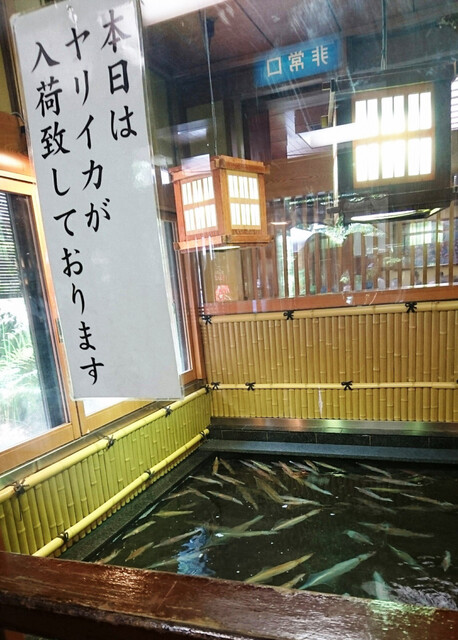 本日は
ヤリイカが
入荷致しております
非常口